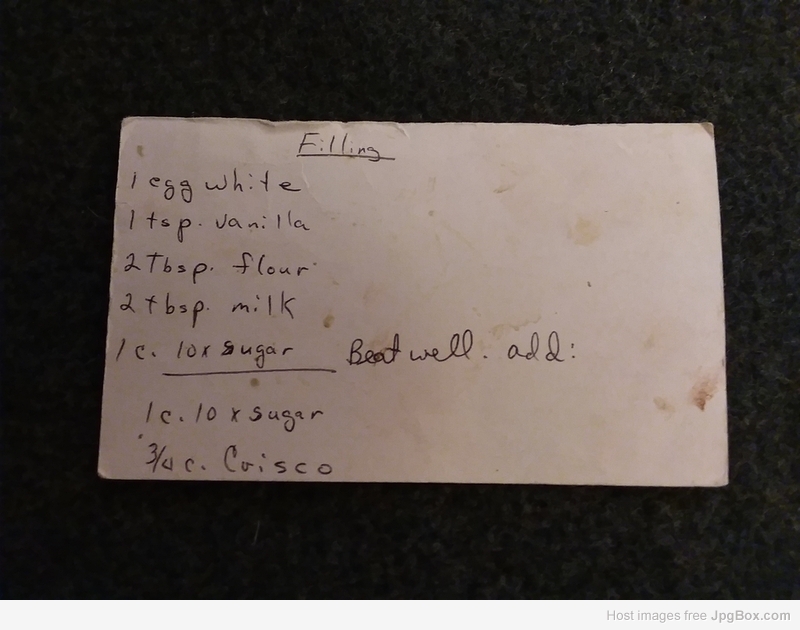 Filling
1 egg white
1 tsp. vanilla
2 Tbsp. flour
2 tbsp. milk
1 c. 10x sugar Beat well. add:
1 c. 10 x sugar
3/4 c. Crisco
Host images free JpgBox.com